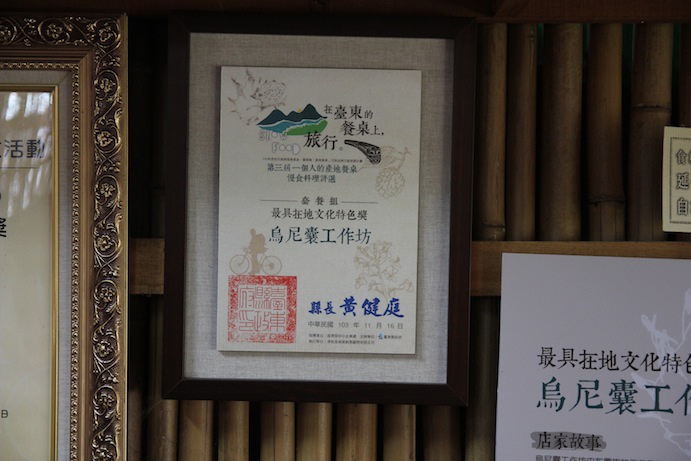 活動
獎
在臺東的
餐桌上，
旅行。
SLOW
FOOD
第三屆一個人的產地餐桌
慢食料理評選
套餐組
最具在地文化特色獎
烏尼囊工作坊
臺東縣政府印
縣長 黃健庭
中華民國 103 年 11 月 16 日
食
延
自
最具在地文化特色
烏尼囊工作
店家故事